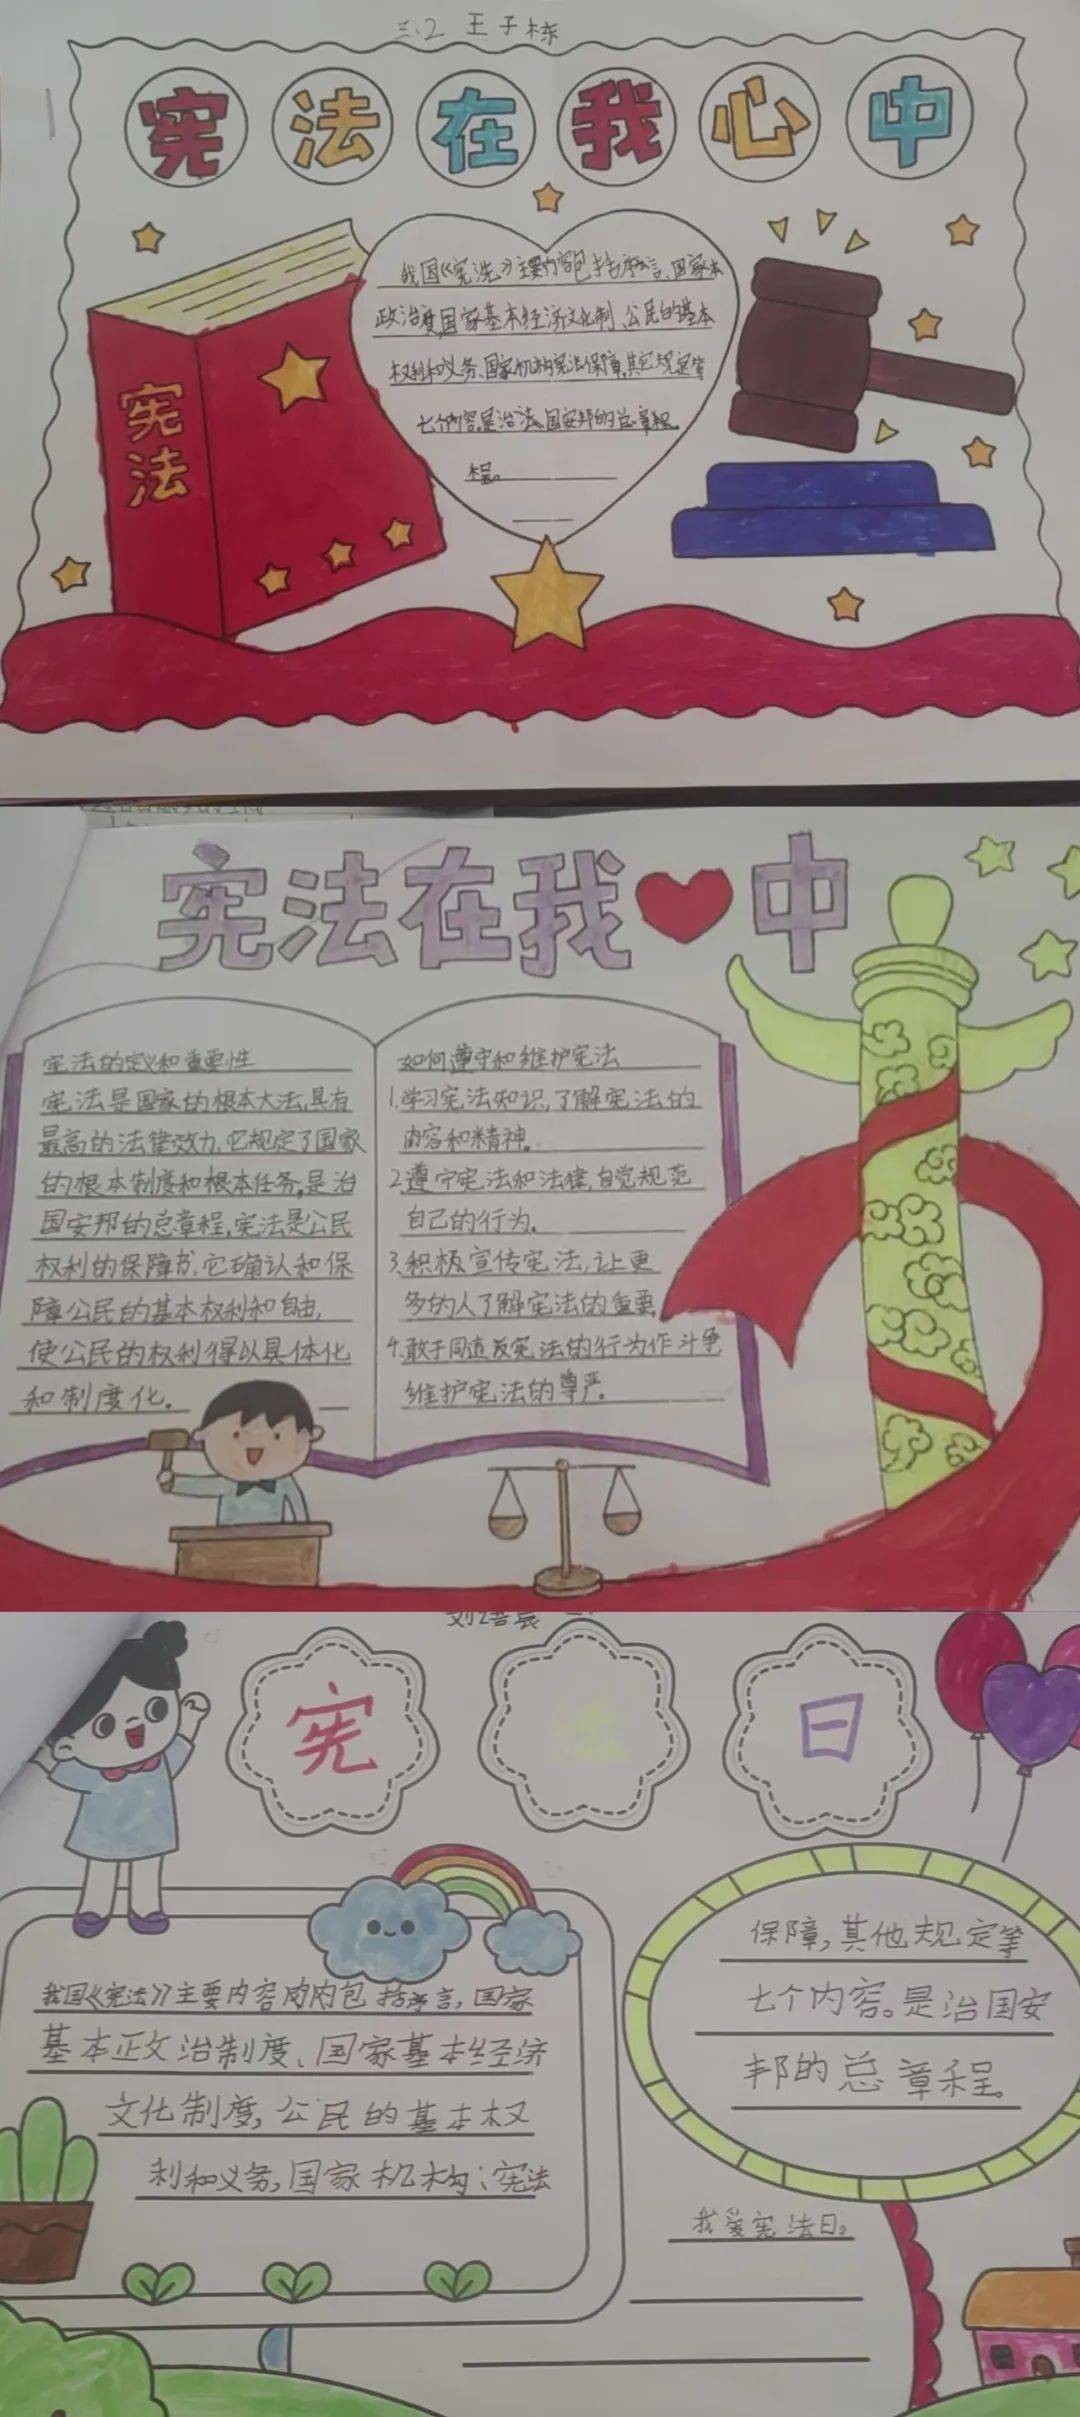 三.2 王子栋
宪法在我心中
宪法
我国《宪法》主要内容包括序言、国家本
政治度,国家基本经济文化制、公民的基本
权利和义务、国家机构宪法保障,其它规定等
七个内容是治法、国安邦的总章程。
程。
宪法在我中
宪法的定义和重要性
宪法是国家的根本大法,具有
最高的法律效力,它规定了国家
的根本制度和根本任务,是治
国安邦的总章程,宪法是公民
权利的保障书,它确认和保
障公民的基本权利和自由,
使公民的权利得以具体化
和制度化。
如何遵守和维护宪法
1.学习宪法知识,了解宪法的
内容和精神。
2.遵守宪法和法律,自觉规范
自己的行为。
3.积极宣传宪法,让更
多的人了解宪法的重要
4.敢于同违反宪法的行为作斗争
维护宪法的尊严。
宪法日
我国《宪法》主要内容肉内包括序言,国家
基本正攵治制度、国家基本经济
文化制度,公民的基本权
利和义务,国家机构;宪法
保障,其他规定等
七个内容。是治国安
邦的总章程。
我爱宪法日。